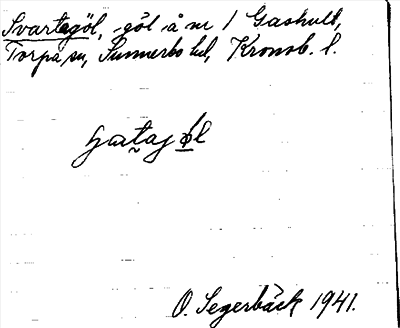 Svartegöl, göl å nr 1 Gashult,
Torpa sn, Sunnerbo hd, Kronob. l.
O. Segerbäck 1941.